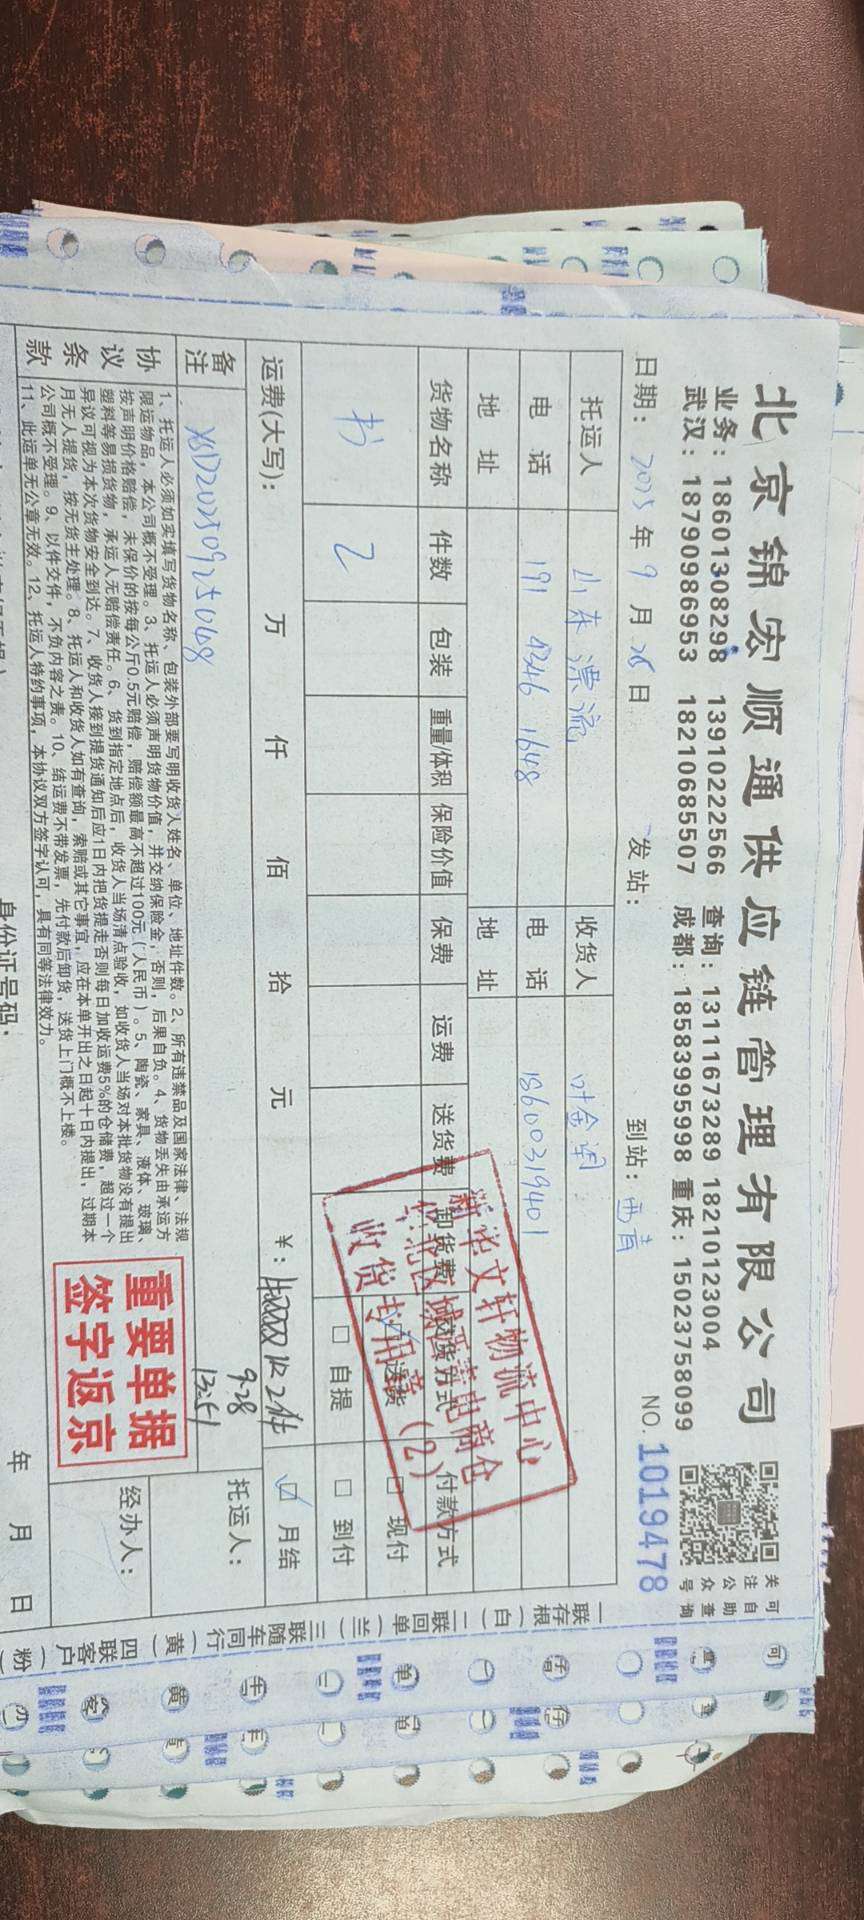 北京锦宏顺通供应链管理有限公司
业务：18601308298 13910222566 查询：13111673289 18210123004
武汉：18790986953 18210685507 成都：18583995998 重庆：15023758099
关注公众号
可自助查询
NO. 1019478
日期：2025年9月26日 发站： 到站：西青
托运人 山东漂流 收货人
电话 191 4346 1648 电话 18600319401
地址 地址
货物名称 件数 包装 重量/体积 保险价值 保费 运费 送货费 卸货费 交货方式 付款方式
书 2 送货 现付
自提 到付
运费(大写)： 万 仟 佰 拾 元 ¥： 月结
备注 XSD20250925048
收 2件
928
13:51
托运人：
新华文轩物流中心
华北区域西青电商仓
收货专用章（2）
协议条款
1、托运人必须如实填写货物名称、包装外部要写明收货人姓名、单位、地址件数。2、所有违禁品及国家法律、法规
限运物品，本公司概不受理。3、托运人必须声明货物价值，并交纳保险金，否则，后果自负。4、货物丢失由承运方
按声明价格赔偿，未保价的按每公斤0.5元赔偿，赔偿额最高不超过100元（人民币）。5、陶瓷、家具、液体、玻璃、
塑料等易损货物，承运人无赔偿责任。6、货到指定地点后，收货人当场清点验收，如收货人当场对本批货物没有提出
异议可视为本次货物安全到达。7、收货人接到提货通知后应1日内把货提走否则每日加收运费5%的仓储费，超过一个
月无人提货，按无货主处理。8、托运人和收货人如有查询，索赔或其它事宜，应在本单开出之日起十日内提出，过期本
公司概不受理。9、以件交件，不负内容之责。10、结运费不带发票，先付款后卸货，送货上门概不上楼。
11、此运单无公章无效。12、托运人特约事项，本协议双方签字认可，具有同等法律效力。
重要单据
签字返京
经办人：
身份证号码：
年 月 日
一联存根（白） 二联回单（兰） 三联随车同行（黄） 四联客户（粉）